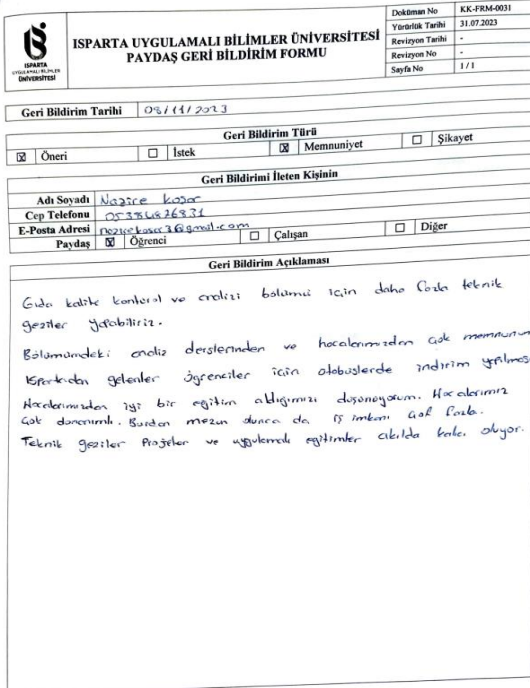 ISPARTA
UYGULAMALI BİLİMLER
ÜNİVERSİTESİ
ISPARTA UYGULAMALI BİLİMLER ÜNİVERSİTESİ
PAYDAŞ GERİ BİLDİRİM FORMU
Doküman No KK-FRM-0031
Yürürlük Tarihi 31.07.2023
Revizyon Tarihi -
Revizyon No -
Sayfa No 1 / 1
Geri Bildirim Tarihi 08/11/2023
Geri Bildirim Türü
☒ Öneri ☐ İstek ☒ Memnuniyet ☐ Şikayet
Geri Bildirimi İleten Kişinin
Adı Soyadı Nazire Koşar
Cep Telefonu 05384826831
E-Posta Adresi nazirekosar3@gmail.com
Paydaş ☒ Öğrenci ☐ Çalışan ☐ Diğer
Geri Bildirim Açıklaması
Gıda kalite kontorol ve analizi bölümü için daha fazla teknik
geziler yapabiliriz.
Bölümümdeki analiz derslerinden ve hocalarımızdan çok memnunum
Isparta'dan gelenler öğrenciler için otobüslerde indirim yapılması
Hocalarımızdan iyi bir eğitim aldığımızı düşünüyorum. Hocalarımız
çok donanımlı. Burdan mezun olunca da iş imkanı çok fazla.
Teknik geziler Projeler ve uygulamalı eğitimler akılda kalıcı oluyor.